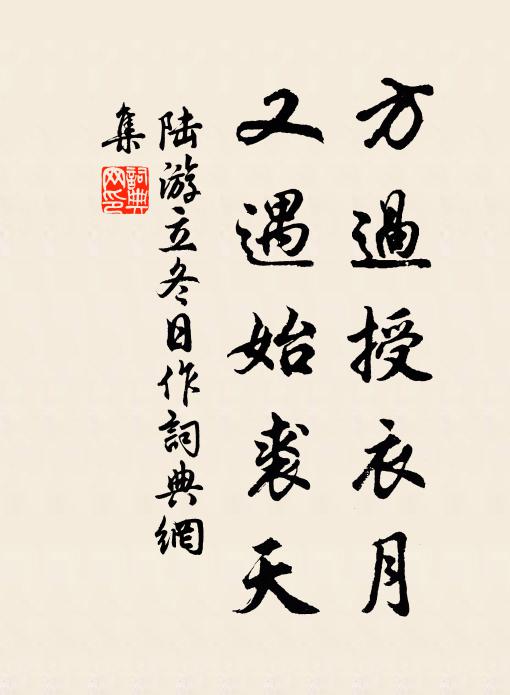 方過授衣月
又遇始裘天
陸游立冬日作詞典網
集
詞典
网印